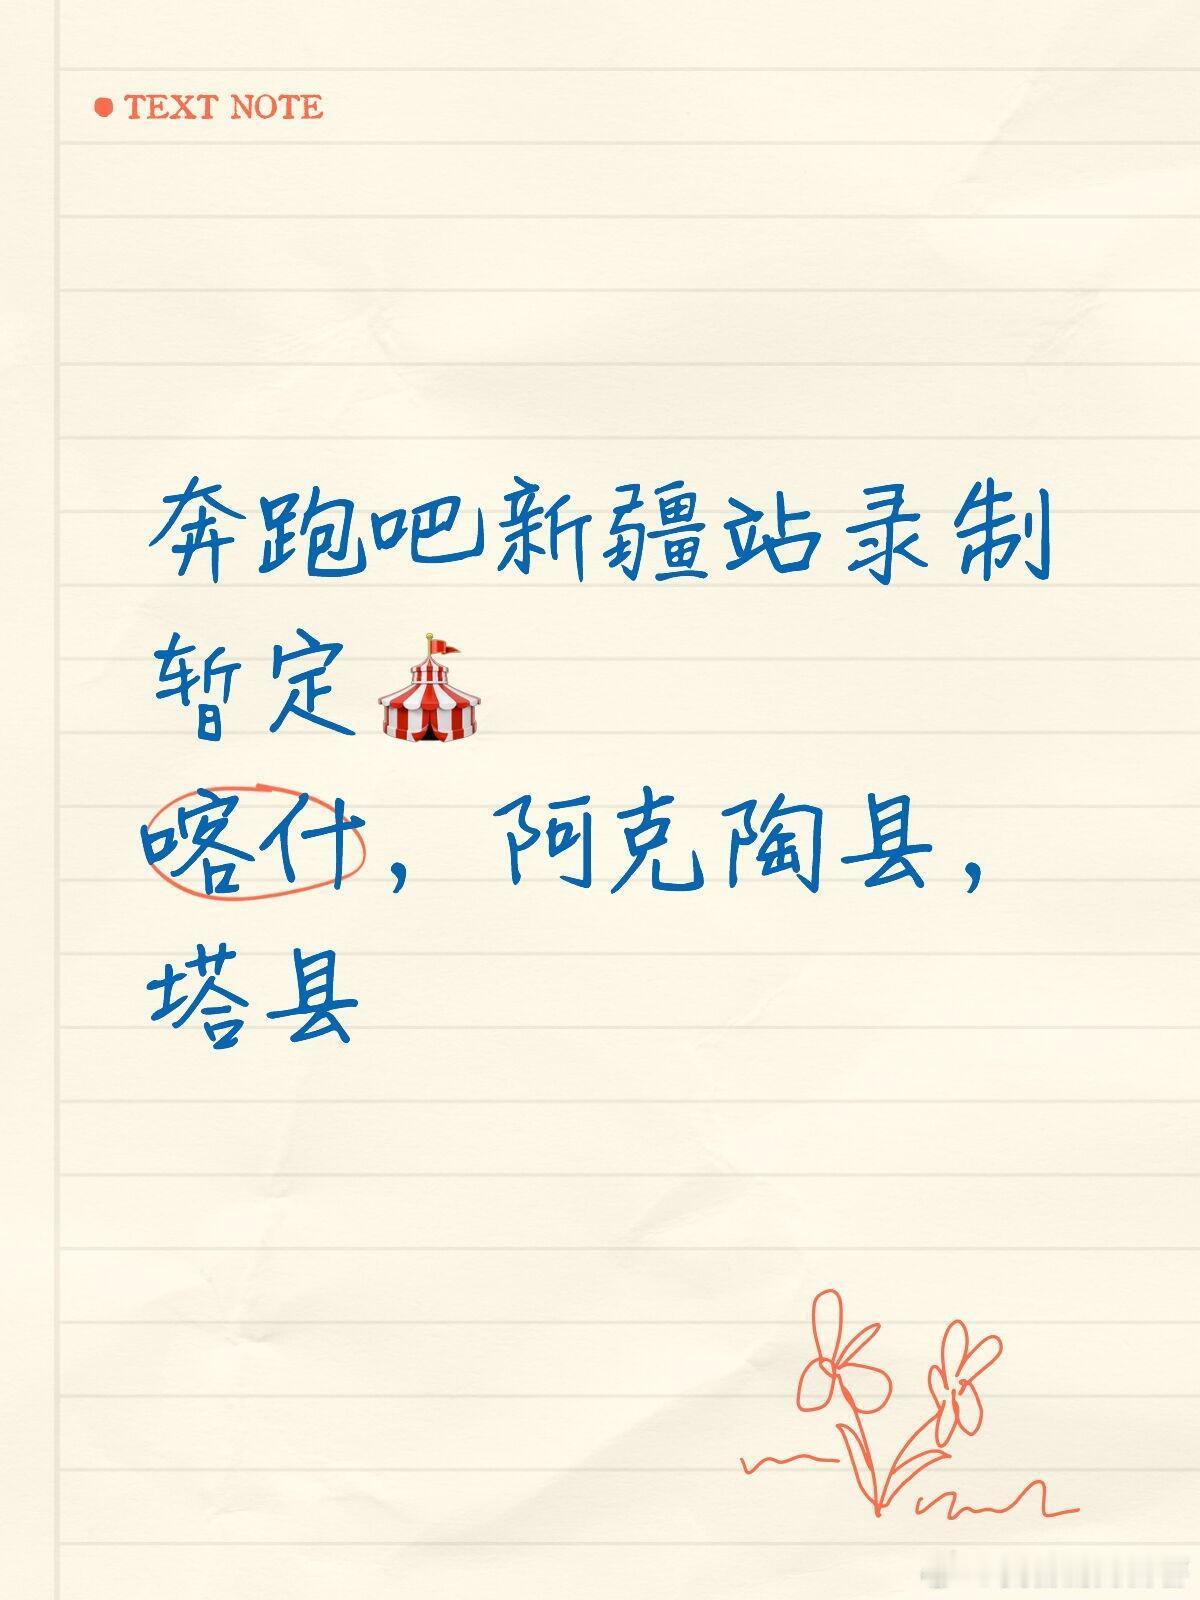 TEXT NOTE
奔跑吧新疆站录制
暂定🎪
喀什，阿克陶县，
塔县